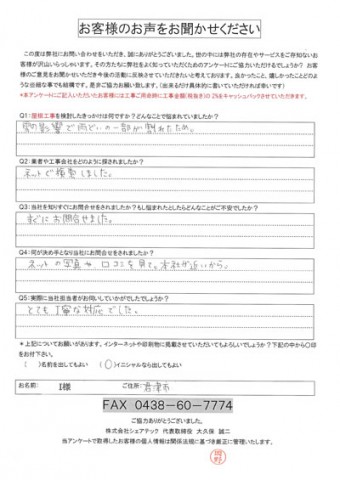 お客様のお声をお聞かせください
この度は弊社にお問い合わせをいただき、誠にありがとうございました。世の中には弊社の存在やサービスをご存知ないお
客様が沢山いらっしゃいます。その方たちに弊社をよく知っていただくためのアンケートにご協力いただけるでしょうか？お客
様のご意見をお聞かせいただき今後の活動に反映させていただきたいと考えております。良かったこと、嬉しかったことどのよ
うな些細な事でも結構です。是非ご協力お願い致します。(出来るだけ具体的に書いていただければ幸いです)
*本アンケートにご記入いただいたお客様には工事ご用命時に工事金額(税抜き)の2%をキャッシュバックさせていただきます。
Q1:屋根工事を検討したきっかけは何ですか？どんなことで悩まれていましたか？
雪の影響で雨どいの一部が割れたため。
Q2:業者や工事会社をどのように探されましたか？
ネットで検索しました。
Q3:当社を知りすぐにお問合せをされましたか？もし悩まれたとしたらどんなことがご不安でしたか？
すぐにお問合せました。
Q4:何が決め手となり当社にお問合せをされましたか？
ネットの写真や口コミを見て。本社が近いから。
Q5:実際に当社担当者がお伺いしていかがでしたでしょうか？
とても丁寧な対応でした。
*上記についてお願いがあります。インターネットや印刷物に掲載させていただいてもよろしいでしょうか？下記の中から〇印
をお付下さい。
( )名前を出してもよい (〇)イニシャルなら出してもよい
お名前: I様 ご住所: 君津市
FAX 0438-60-7774
ご協力ありがとうございました。
株式会社シェアテック 代表取締役 大久保 誠二
当アンケートで取得したお客様の個人情報は関係法規に基づき厳正に管理いたします。